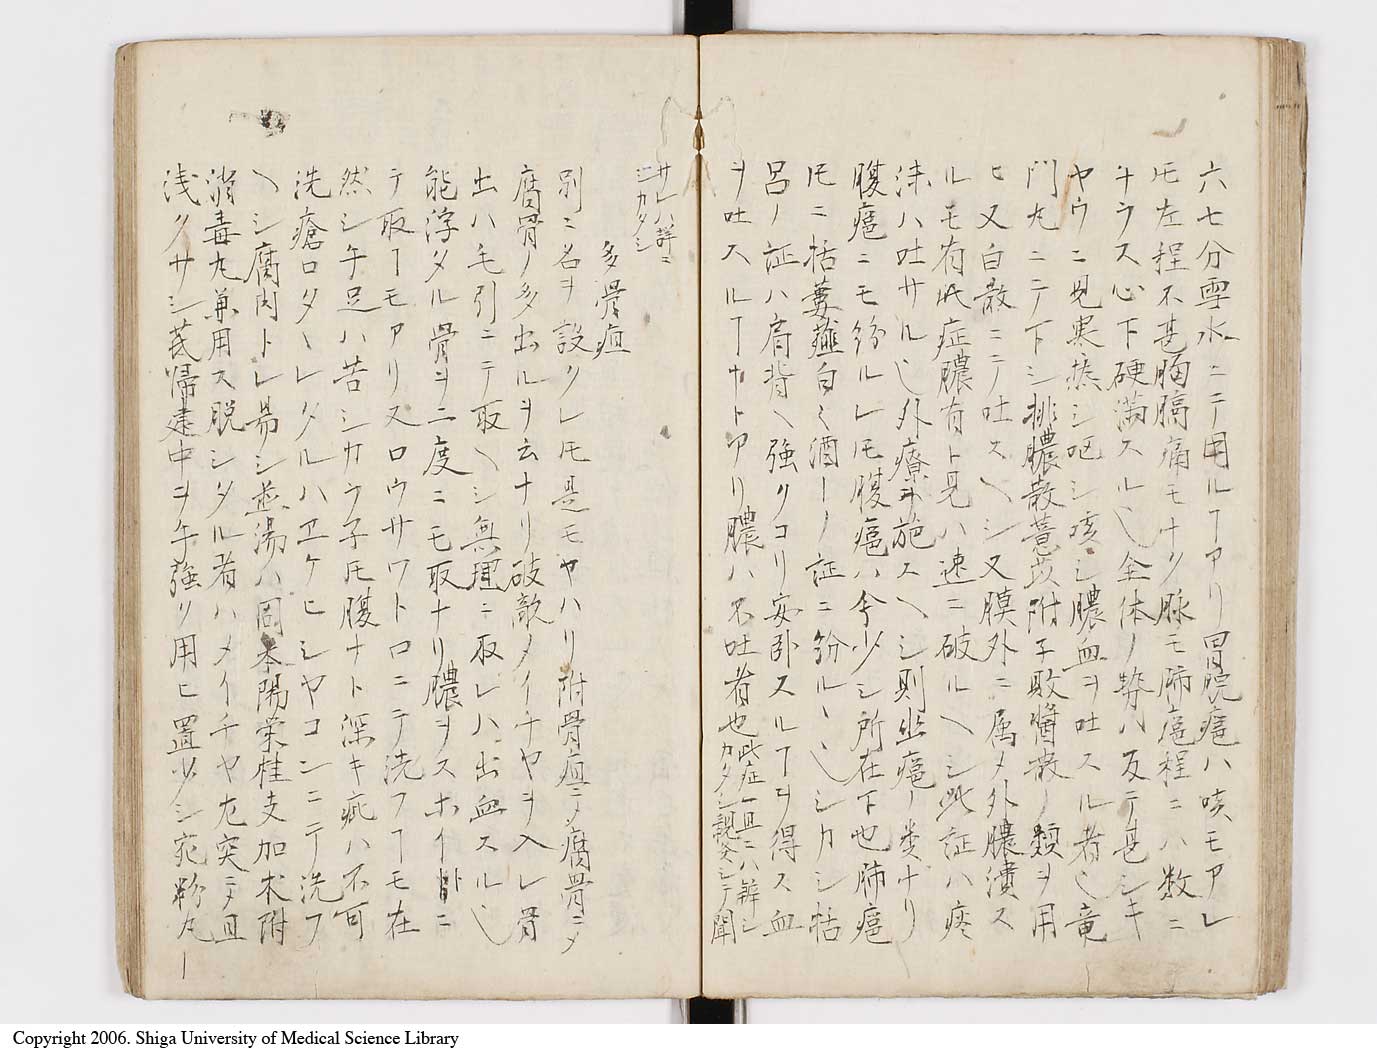 六七分雪水ニニテ用ルヿアリ胃脘癰ハ咳モアレ
𪜈左程不甚胸膈痛モナク脉モ肺癰程ニハ数ニ
チウス心下硬満スル也全体ノ勢ハ反テ甚シキ
ヤウニ見寒熱シ呕シ咳シ膿血ヲ吐スル者也竜
門丸ニテ下シ排膿散薏苡附子敗醤散ノ類ヲ用
ヒ又白散ニテ吐スヘシ又膜外ニ属メ外膿潰ス
ルモ有此症膿有ト見ハ速ニ破ルヘシ此証ハ疼
ハ吐サル也外療ヲ施スヘシ則ノ類ナリ
腹癰ニモ紛ルレ𪜈腹癰ハ今少シ所在下也肺癰
𪜈ニ括蔞薤白々酒ーノ証ニ紛ルヽ也シカシ括
呂ノ証ハ肩背ヘ強クコリ安卧スルヿヲ得ス血
ヲ吐スルヿナトアリ膿ハ不吐者也此症ケ且ニハ辨シ
カタシ認メシテ聞
サレハ詳ニ
シカタシ
多骨疽
別ニ名ヲ設クレ𪜈是モヤハリ附骨疽ニメ腐骨ニメ
腐骨ノ多出ルヲ云ナリ破敵メイチヤヲ入レ骨
出ハ毛引ニテ取ヘシ無理ニ取レハ出血スル也
能浮タル骨ヲ二度ニモ取ナリ膿ヲスホイトニ
テ取ヿモアリスロウサワトロニテ洗フヿモ在
然シ手足ハ苦シカラ子𪜈腹ナト深キ疵ハ不可
洗瘡口タヽレタルハヱケヒシヤコンニテ洗フ
ヘシ腐肉トレ易シ煎湯ハ固本陽栄桂支加朮附
消毒丸兼用ス脱シタル者ハメイチヤ尤突ニメ且
浅クサシ芪帰建中ヲ午強ク用ヒ置少シ宛粉丸